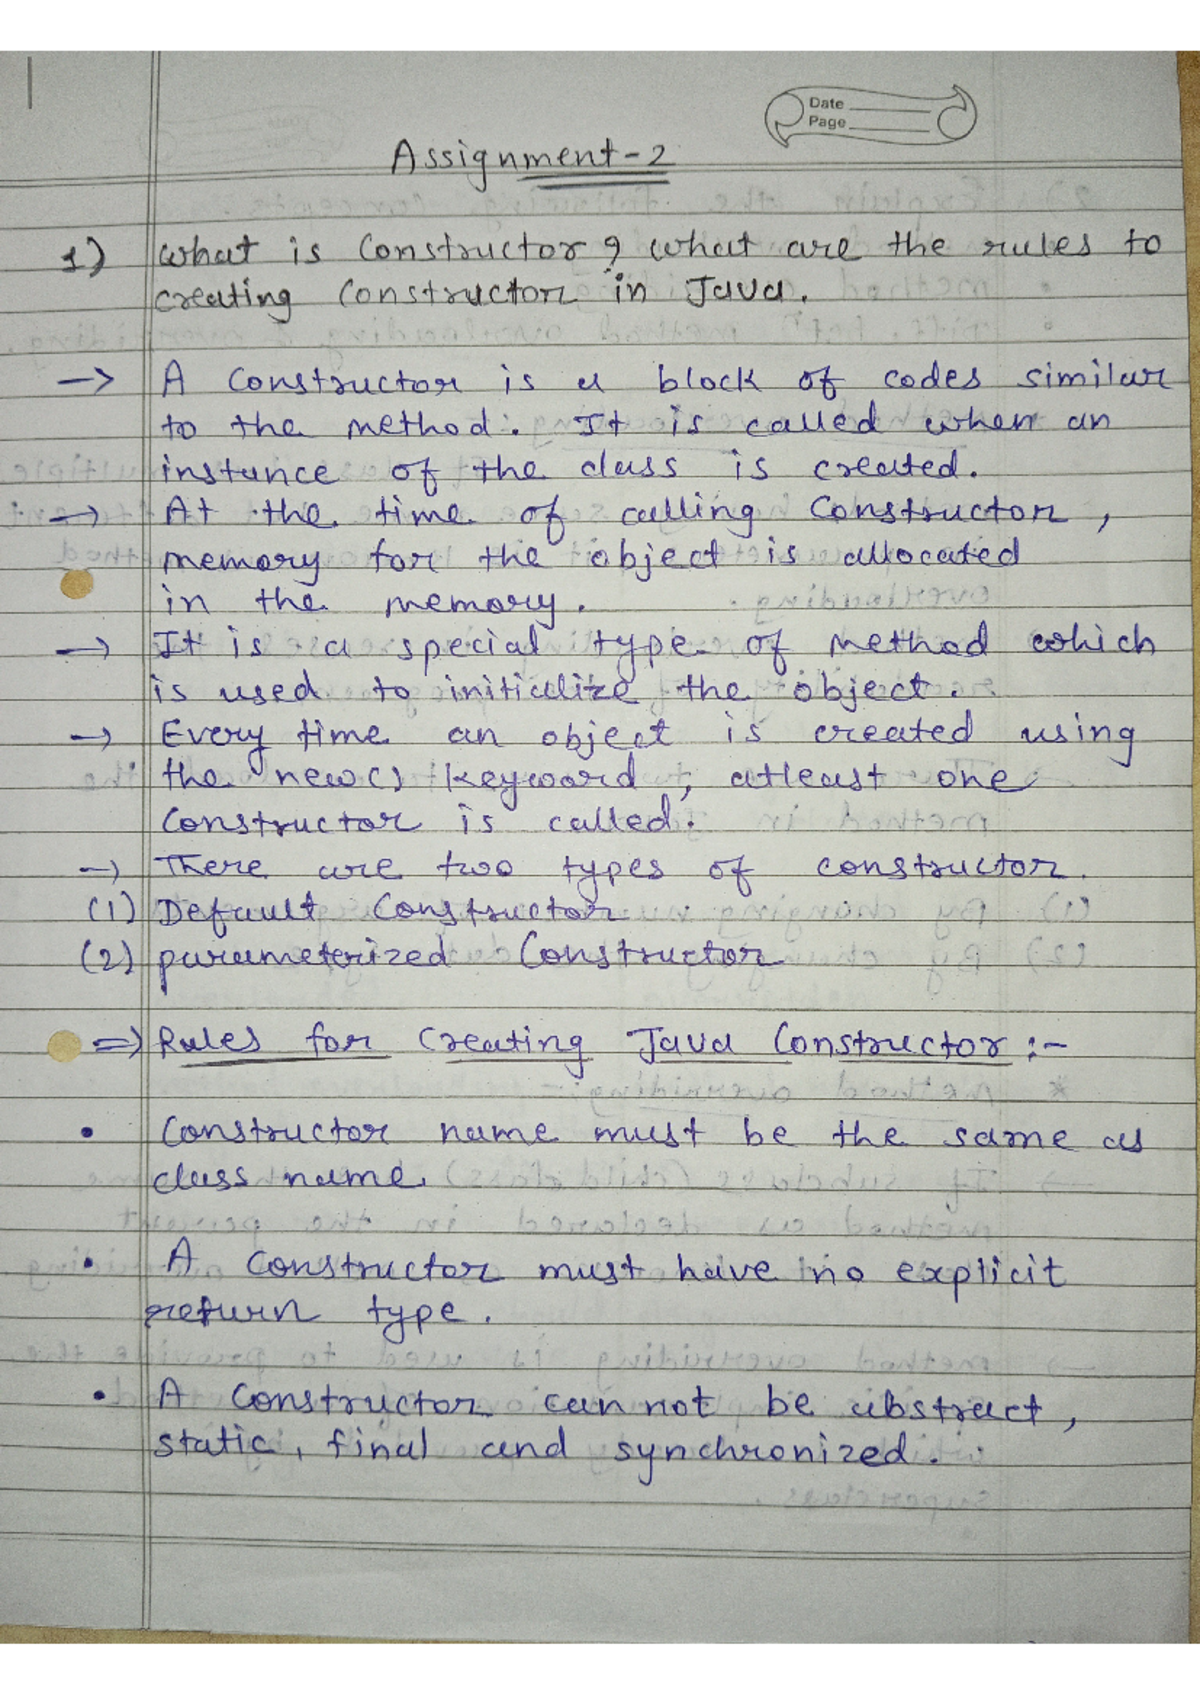 Date
Page
Assignment-2
1) What is Constructor? What are the rules to
creating Constructor in Java.
-> A Constructor is a block of codes similar
to the method. It is called when an
instance of the class is created.
-> At the time of calling Constructor,
memory for the object is allocated
in the memory.
-> It is a special type of method which
is used to initialize the object.
-> Every time an object is created using
the new() keyword, atleast one
Constructor is called.
-> There are two types of constructor.
(1) Default Constructor
(2) parameterized Constructor
=> Rules for Creating Java Constructor :-
• Constructor name must be the same as
class name.
• A Constructor must have no explicit
return type.
• A Constructor can not be abstract,
static, final and synchronized.